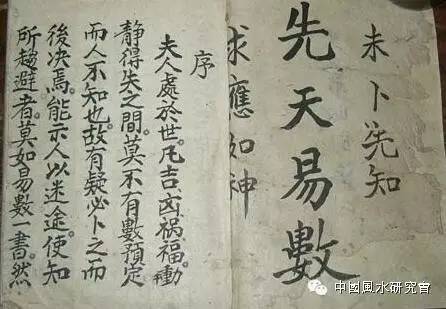 未卜先知
先天易數
求應如神
序
夫人處於世凡吉凶禍福動
靜得失之間莫不有數預定
而人不知也故有疑必卜之而
後决焉能示人以迷途使知
所趨避者莫如易數一書然
中國風水研究會